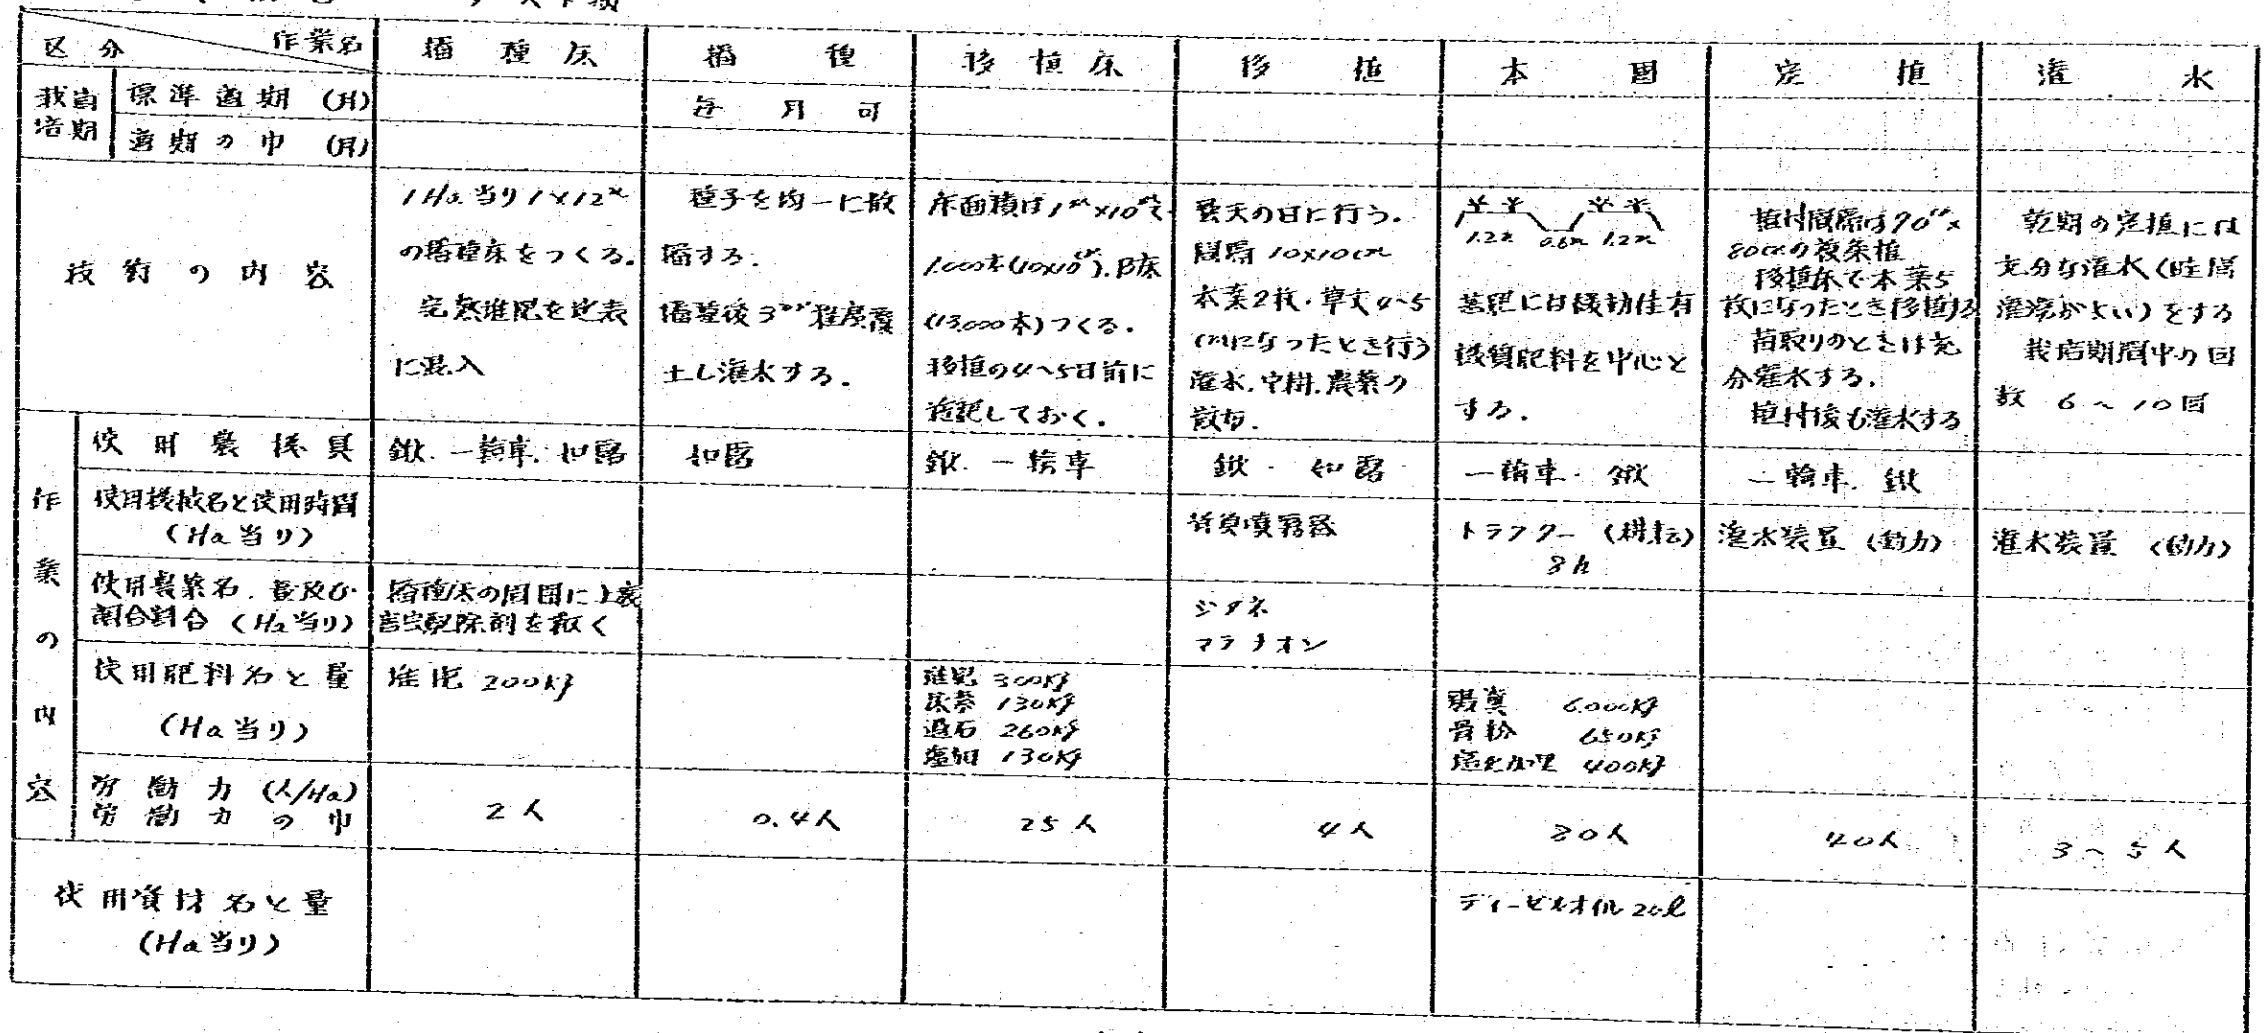 区分 作業名 播種床 播種 移植床 移植 本圃 定植 灌水
栽培 標準適期 (月) 毎月可
適期の巾 (月)
技術の内容
1Ha当り1×12m
の播種床をつくる。
完熟堆肥を
に混入
種子を均一に散
播する。
播種後3mm程度覆
土し灌水する。
床面積は1m×10mで
1,000本(10×10cm).13床
(13,000本)つくる。
移植の4~5日前に
施肥しておく。
曇天の日に行う。
間隔 10×10cm
本葉2枚.草丈4~5
cmになったとき行う
灌水.中耕.農薬の
散布.
1.2m 0.6m 1.2m
基肥には緩効性有
機質肥料を中心と
する.
植付間隔は90cm×
80cmの複条植
移植床で本葉5
枚になったとき移植する
苗取りのときは充
分灌水する.
植付後も灌水する
乾期の定植には
充分な灌水(畦間
灌漑がよい)をする
栽培期間中の回
数 6~10回
作業の内容
使用農機具 鍬.一輪車.如露 如露 鍬.一輪車 鍬.如露 一輪車.鍬 一輪車.鍬
使用機械名と使用時間
(Ha当り)
背負噴霧器
トラクター (耕耘)
8h
灌水装置 (動力) 灌水装置 (動力)
使用農薬名.量及び
調合割合 (Ha当り)
播種床の周囲に土壌
害虫駆除剤を撒く
ジネブ
マラチオン
使用肥料名と量
(Ha当り)
堆肥 200kg
堆肥 300kg
尿素 130kg
過石 260kg
塩加 130kg
鶏糞 6,000kg
骨粉 650kg
塩化加里 400kg
労働力 (人/Ha)
労働力の巾
2人 0.4人 25人 4人 30人 40人 3~5人
使用資材名と量
(Ha当り)
ディーゼルオイル 20ℓ